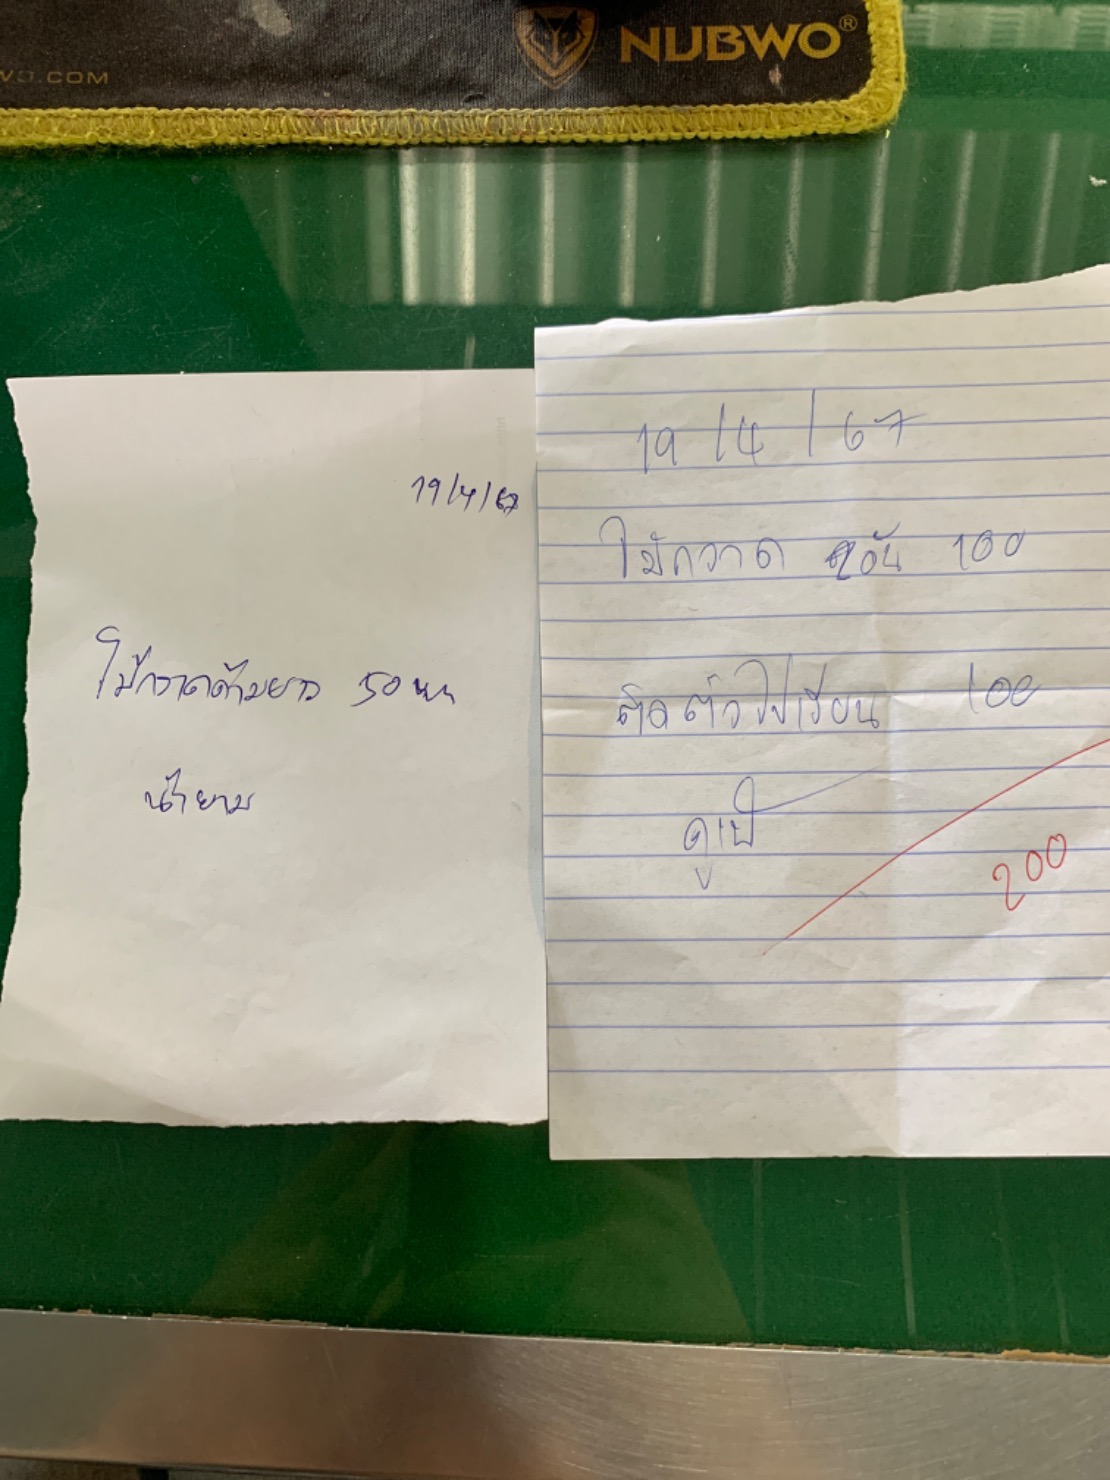 NUBWO®
WO.COM
19/4/67
ไม้กวาดด้ามยาว 50 บาท
น้ายาม
19/4/67
ไม้กวาด 2อัน 100
ติดตัวไปเรียน 100
200